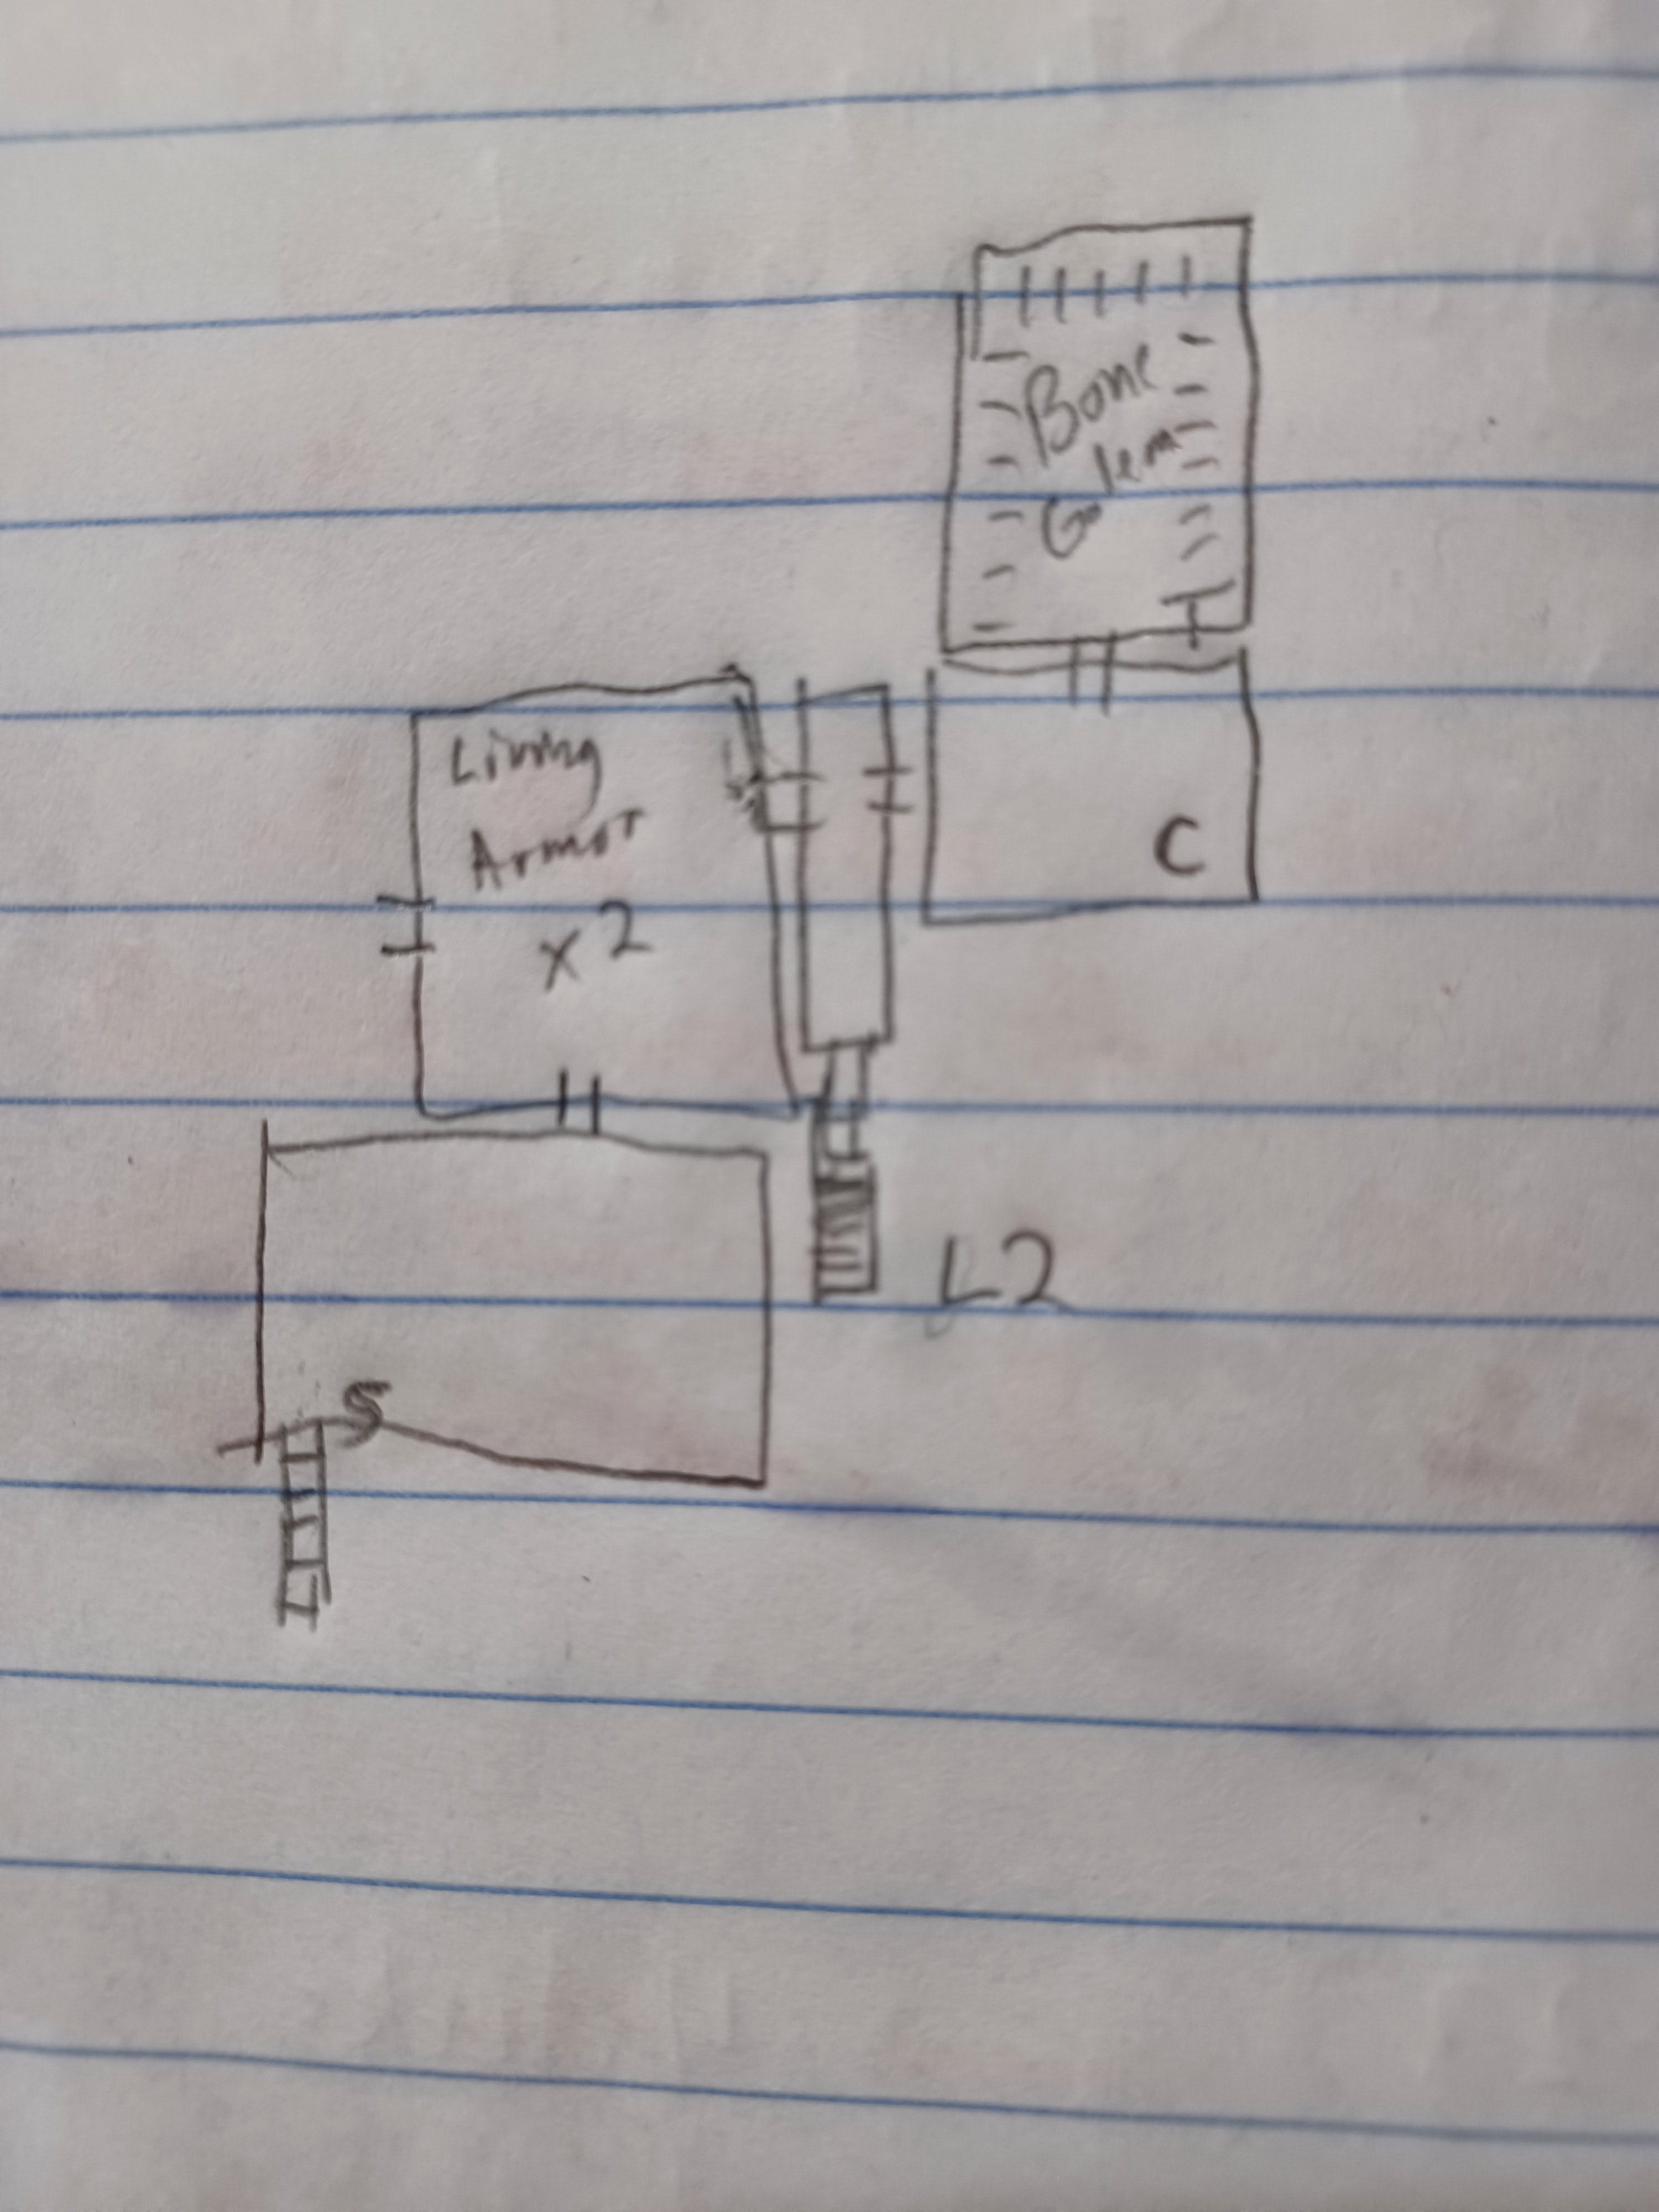 Bone
Golem
T
Living
Armor
x2
C
L2
S